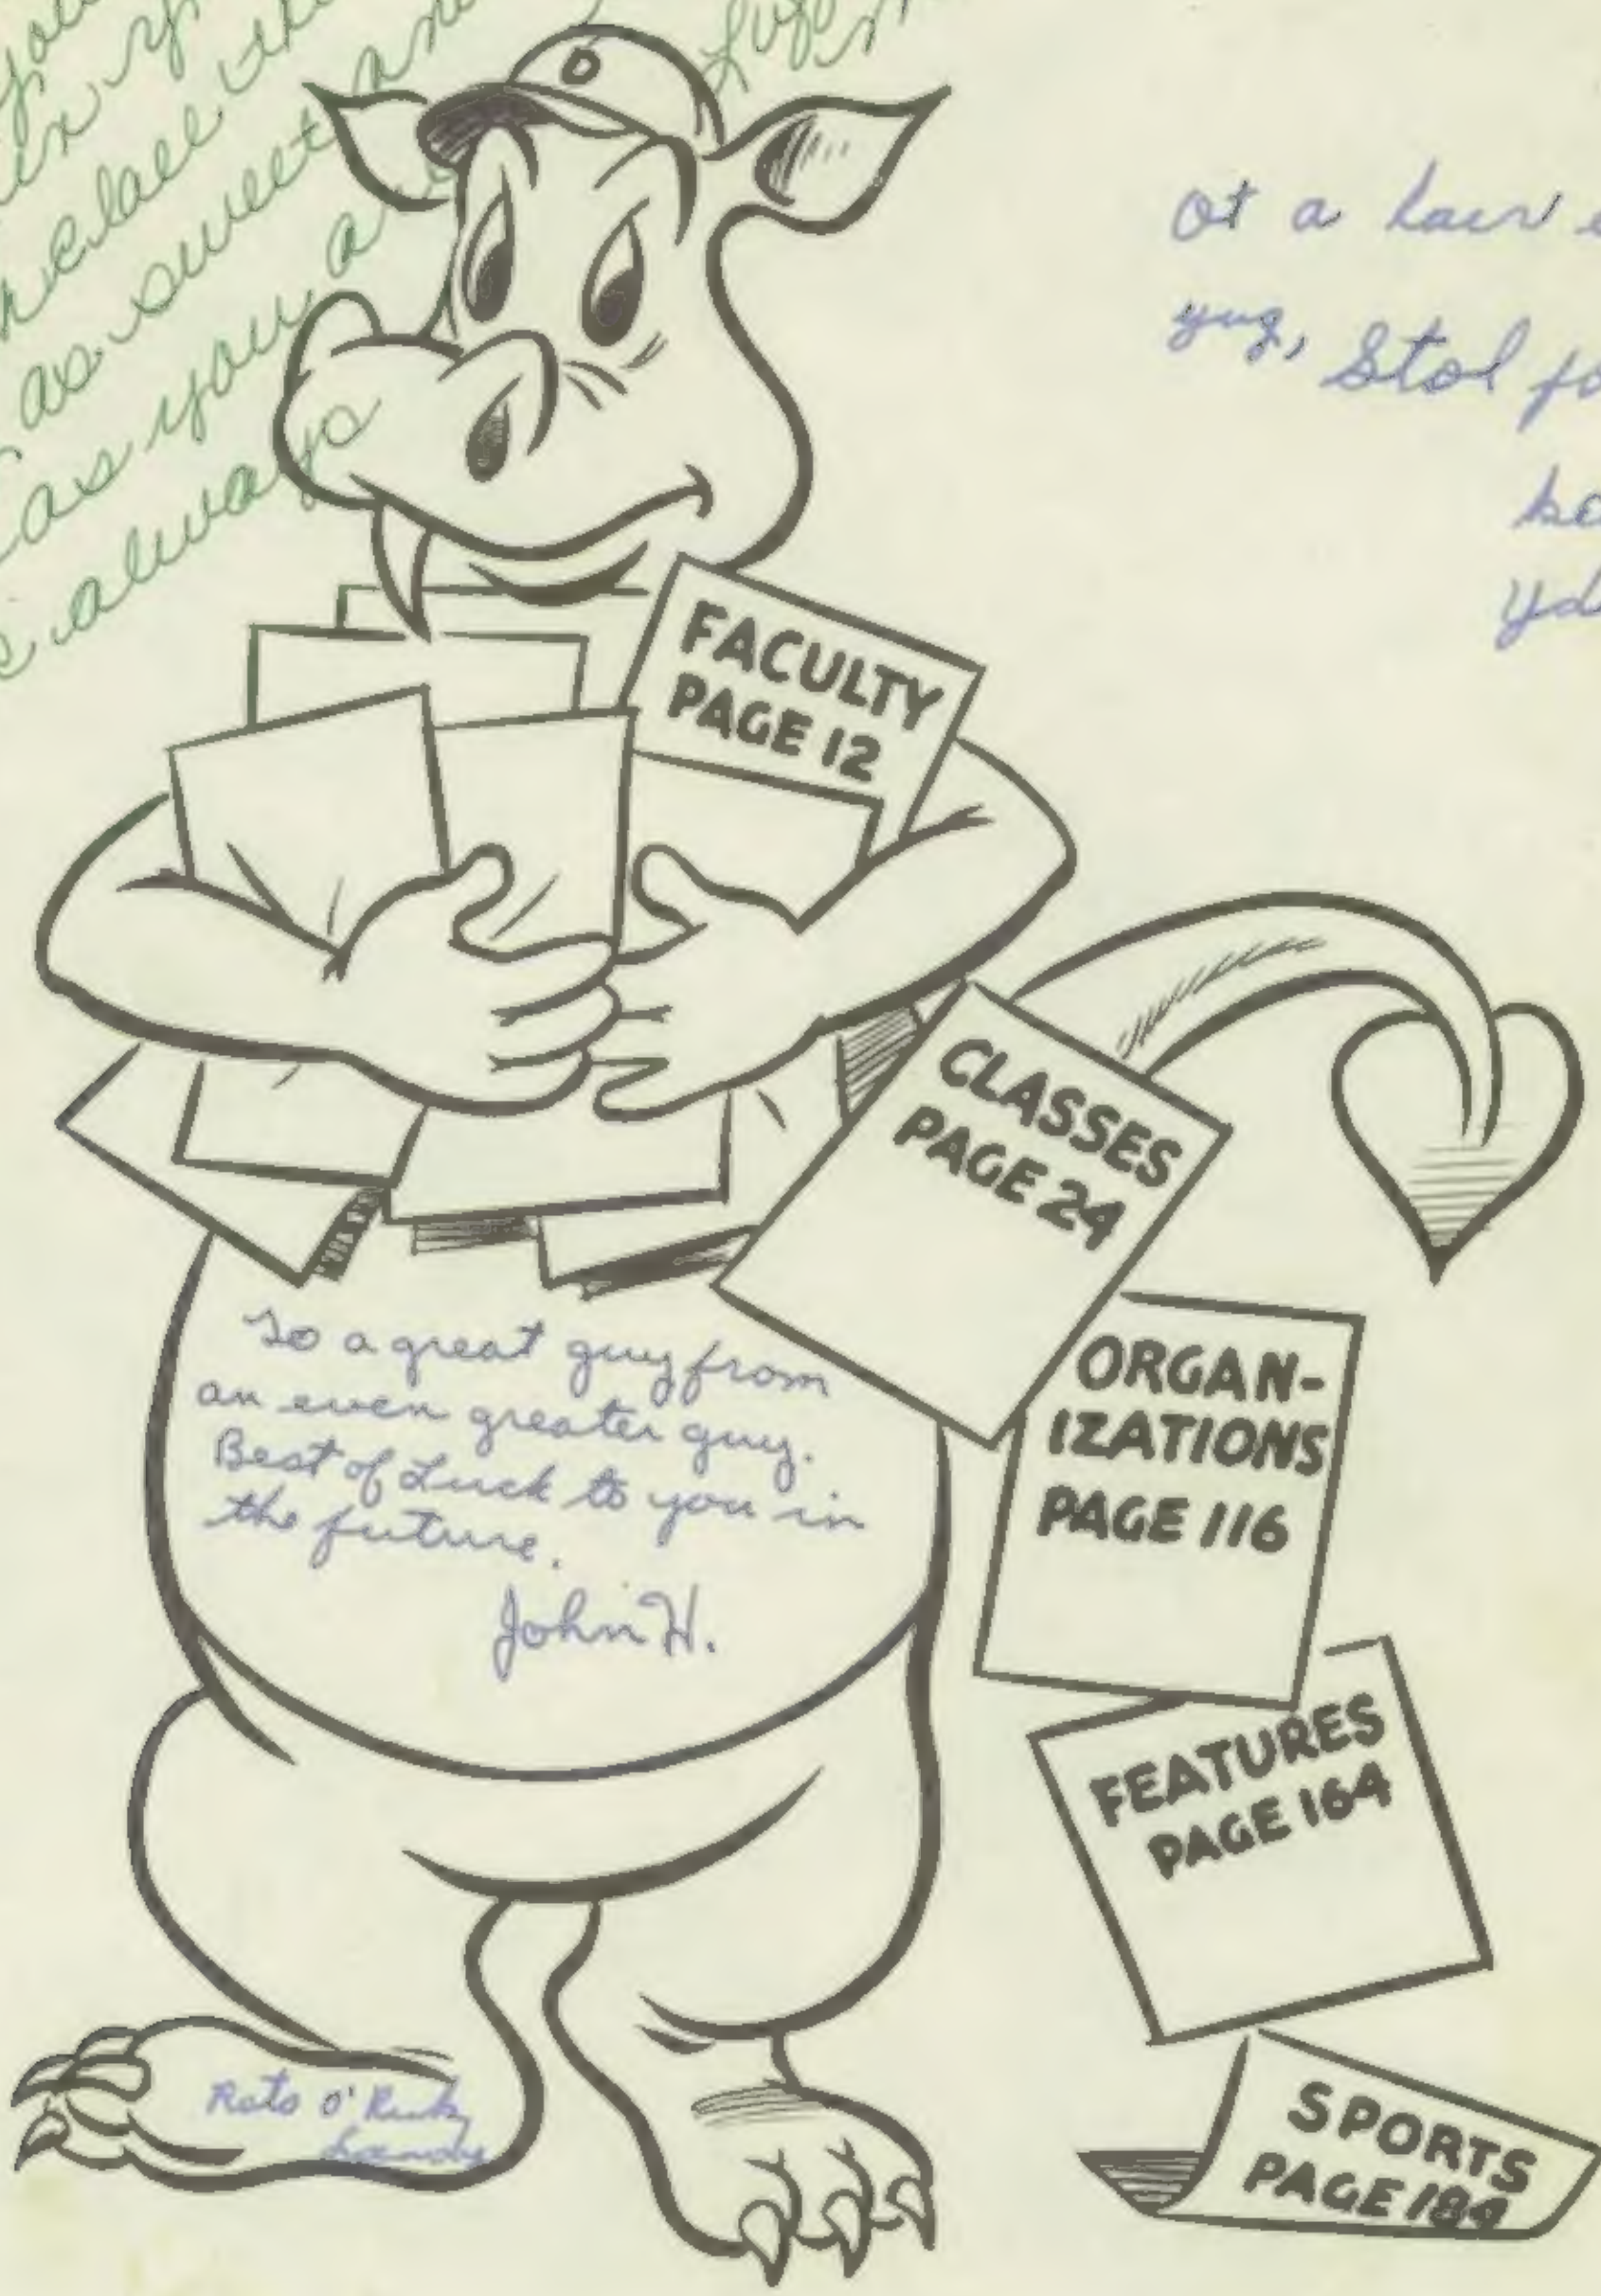 you
as sweet
as you
always
O
ot a lair
yug, Stol
FACULTY
PAGE 12
CLASSES
PAGE 24
ORGAN-
IZATIONS
PAGE 116
FEATURES
PAGE 164
SPORTS
PAGE 184
To a great guy from
an even greater guy.
Best of Luck to you in
the future.
John H.